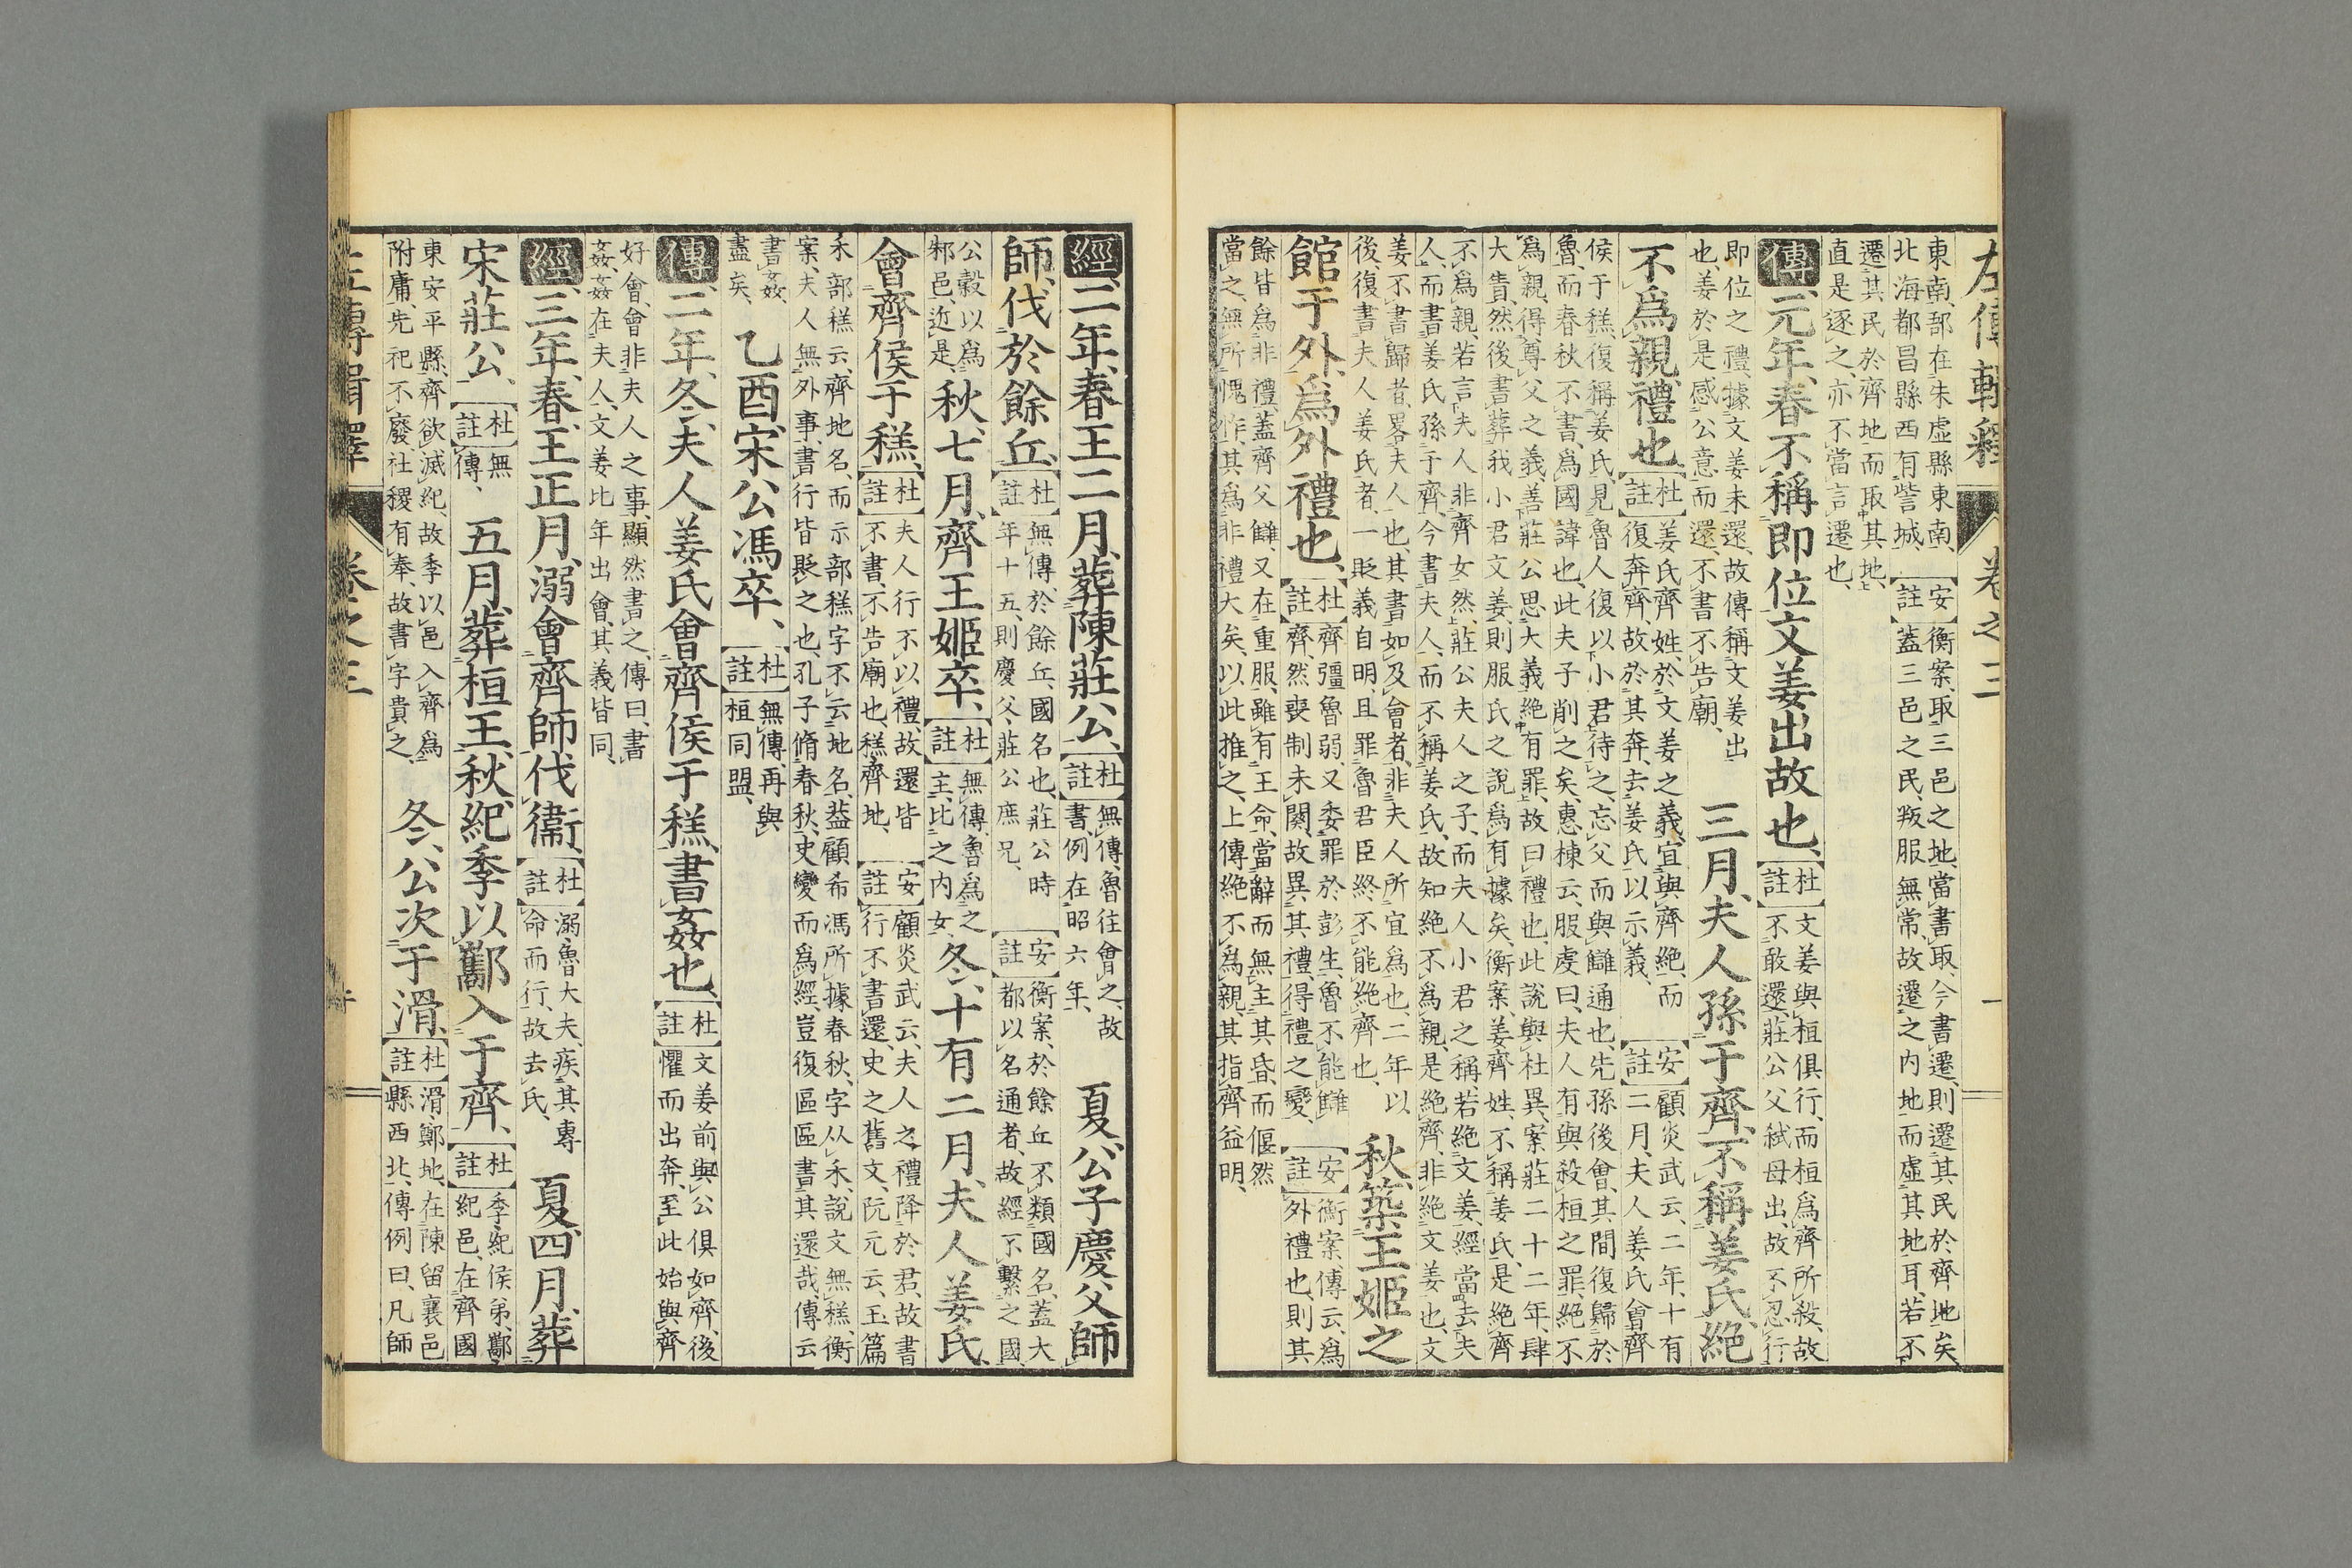 左傳輯釋 卷之三
東南、郚在朱虛縣東南、
北海都昌縣西有訾城、
【安註】
衡案、取三邑之地、當書取、今書遷、則遷其民於齊地矣、
蓋三邑之民、叛服無常、故遷之内地而虛其地耳、若不
遷其民於齊地而取其地、
直是逐之、亦不當言遷也、
傳、元年、春不稱即位文姜出故也、
【杜註】
文姜與桓俱行、而桓爲齊所殺、故
不敢還、莊公父弑母出、故不忍行
即位之禮、據文姜未還、故傳稱文姜出
也、姜於是感公意而還、不書不告廟、
三月、夫人孫于齊、不稱姜氏、絕
不爲親、禮也、
【杜註】
姜氏齊姓、於文姜之義、宜與齊絕、而
復奔齊、故於其奔、去姜氏以示義、
【安註】
顧炎武云、二年、十有
二月、夫人姜氏會齊
侯于禚、復稱姜氏、見魯人復以小君待之、忘父而與讎通也、先孫後會、其間復歸於
魯、而春秋不書、爲國諱也、此夫子削之矣、惠棟云、服虔曰、夫人有與殺桓之罪、絕不
爲親、得尊父之義、善莊公思大義絕有罪、故曰禮也、此說與杜異、案莊二十二年、肆
大眚、然後書葬我小君文姜、則服氏之說爲有據矣、衡案、姜齊姓、不稱姜氏、是絕齊
不爲親、若言夫人非齊女然、莊公夫人之子、而夫人小君之稱、若絕文姜、經當去夫
人、而書姜氏孫于齊、今書夫人、而不稱姜氏、故知絕不爲親、是絕齊、非絕文姜也、文
姜不書歸者、畧夫人也、其書如及會者、非夫人所宜爲也、二年以
後、復書夫人姜氏者、一貶義自明、且罪魯君臣終不能絕齊也、
秋、築王姬之
館于外、爲外禮也、
【杜註】
齊彊魯弱、又委罪於彭生、魯不能讎
齊、然喪制未闋、故異其禮、得禮之變、
【安註】
衡案、傳云、爲
外禮也、則其
餘皆爲非禮、蓋齊父讎、又在重服、雖有王命、當辭而無主其昏、而偃然
當之、無所愧怍、其爲非禮大矣、以此推之、上傳絕不爲親、其指齊益明、
經、二年、春王二月、葬陳莊公、
【杜註】
無傳、魯往會之、故
書、例在昭六年、
夏、公子慶父帥
師、伐於餘丘、
【杜註】
無傳、於餘丘、國名也、莊公時
年十五、則慶父、莊公庶兄、
【安註】
衡案、於餘丘不類國名、蓋大
都以名通者、故經不繫之國、
公穀以爲
邾邑、近是、
秋、七月、齊王姬卒、
【杜註】
無傳、魯爲之
主、比之内女、
冬、十有二月、夫人姜氏、
會齊侯于禚、
【杜註】
夫人行不以禮、故還皆
不書、不告廟也、禚齊地、
【安註】
顧炎武云、夫人之禮降於君、故書
行不書還、史之舊文、阮元云、玉篇
禾部禚云、齊地名、而示部禚字不云地名、葢顧希馮所據春秋、字从禾、說文無禚、衡
案、夫人無外事、書行皆貶之也、孔子脩春秋、史變而爲經、豈復區區書其還哉、傳云
書姦、
盡矣、
乙酉、宋公馮卒、
【杜註】
無傳、再與
桓同盟、
傳、二年、冬、夫人姜氏會齊侯于禚、書姦也、
【杜註】
文姜前與公俱如齊、後
懼而出奔、至此始與齊
好會、會非夫人之事、顯然書之、傳曰、書
姦、姦在夫人、文姜比年出會、其義皆同、
經、三年、春、王正月、溺會齊師伐衞、
【杜註】
溺、魯大夫、疾其專
命而行、故去氏、
夏、四月、葬
宋莊公、
【杜註】
無
傳、
五月、葬桓王、秋、紀季以酅入于齊、
【杜註】
季、紀侯弟、酅、
紀邑、在齊國
東安平縣、齊欲滅紀、故季以邑入齊爲
附庸、先祀不廢、社稷有奉、故書字貴之、
冬、公次于滑、
【杜註】
滑、鄭地、在陳留襄邑
縣西北、傳例曰、凡師
左傳輯釋 卷之三